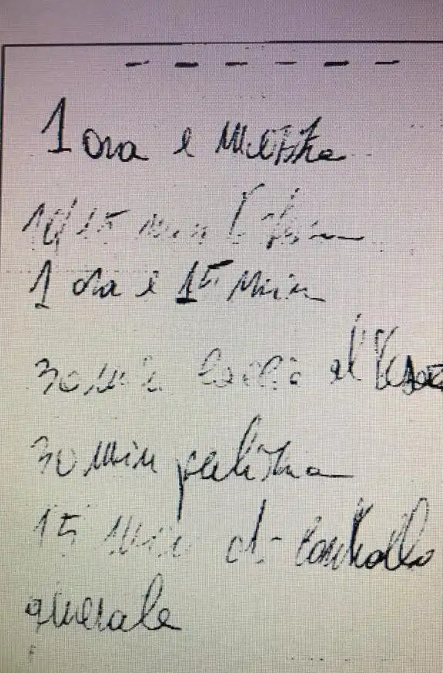 1 ora e mezza
10/15 min
1 ora e 15 min
30 min
30 min pulizia
15 min di controllo
generale